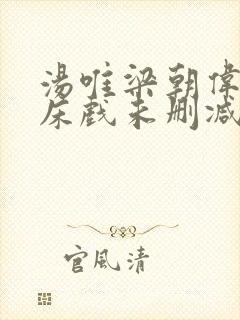 湯唯梁朝偉
床戲未刪減
官風清